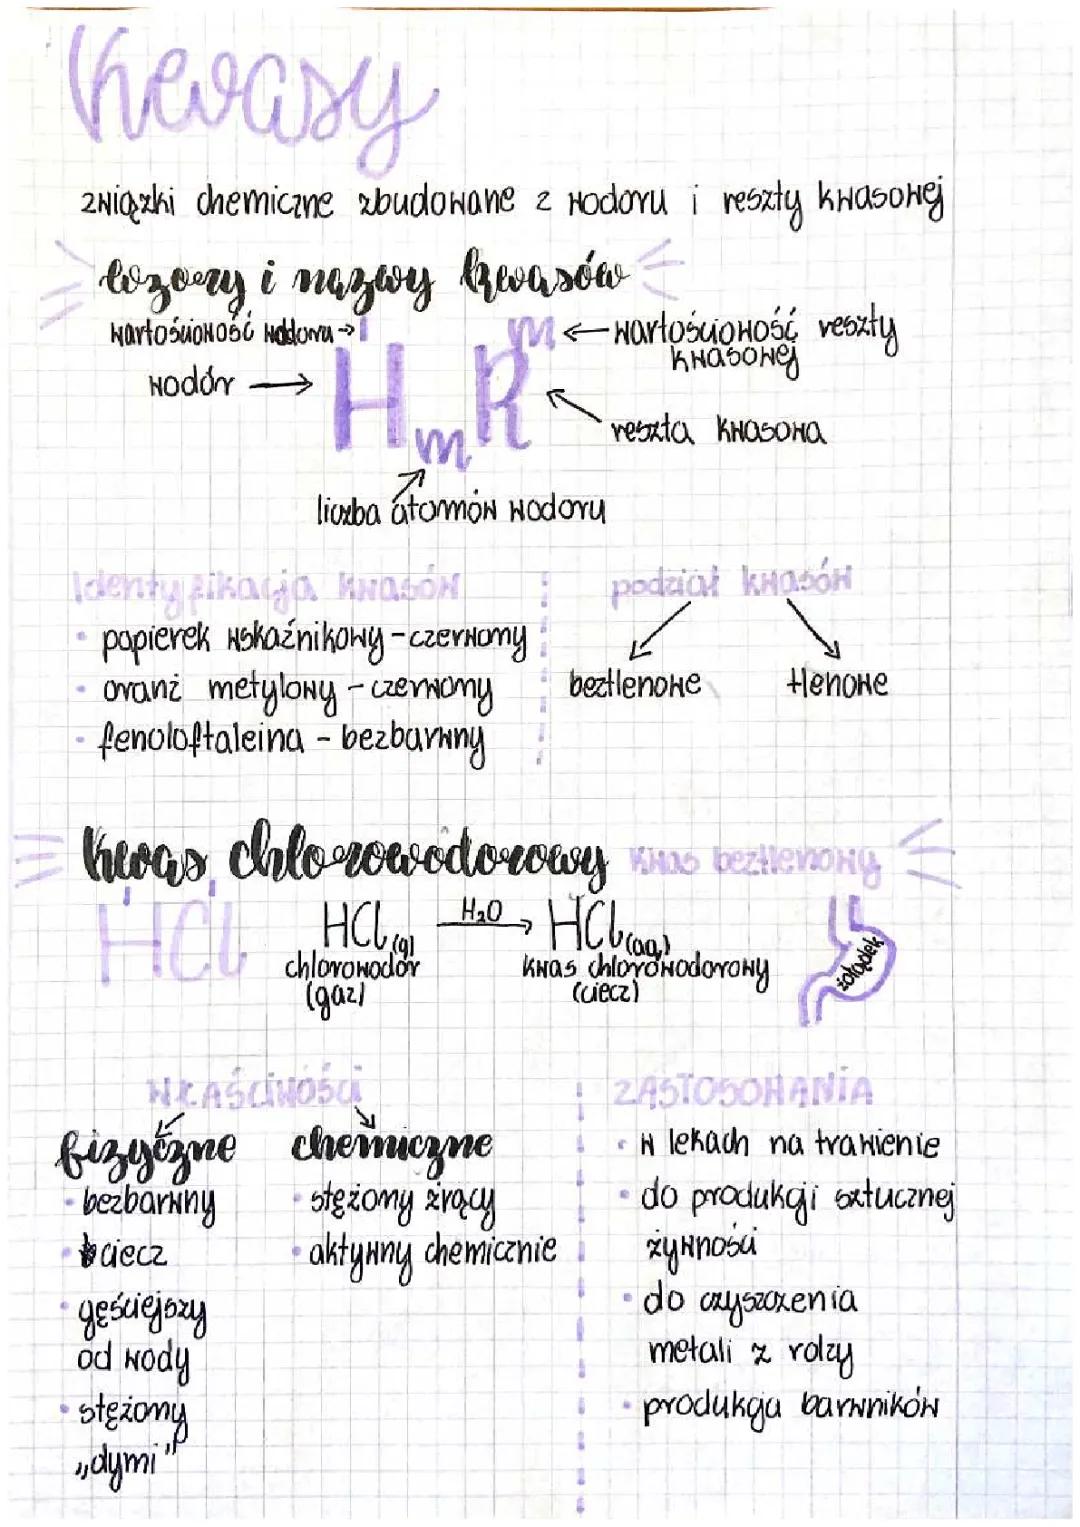 Kwasy
związki chemiczne zbudowane z wodoru i reszty kwasowej
Wzory i nazwy kwasów
wartościowość wodoru → I
m ← wartościowość reszty
kwasowej
wodór →
HmR
reszta kwasowa
liczba atomów wodoru
Identyfikacja kwasów
• papierek wskaźnikowy - czerwony
• oranż metylowy - czerwony
• fenoloftaleina - bezbarwny
podział kwasów
beztlenowe
tlenowe
Kwas chlorowodorowy kwas beztlenowy
I I
HCl
HCl(g) H₂O → HCl(aq)
chlorowodór
(gaz)
kwas chlorowodorowy
(ciecz)
żołądek
WŁAŚCIWOŚCI
fizyczne
• bezbarwny
• ciecz
• gęściejszy
od wody
• stężony
„dymi"
chemiczne
• stężony żrący
• aktywny chemicznie
ZASTOSOWANIA
• w lekach na trawienie
• do produkcji sztucznej
żywności
• do czyszczenia
metali z rdzy
• produkcja barwników